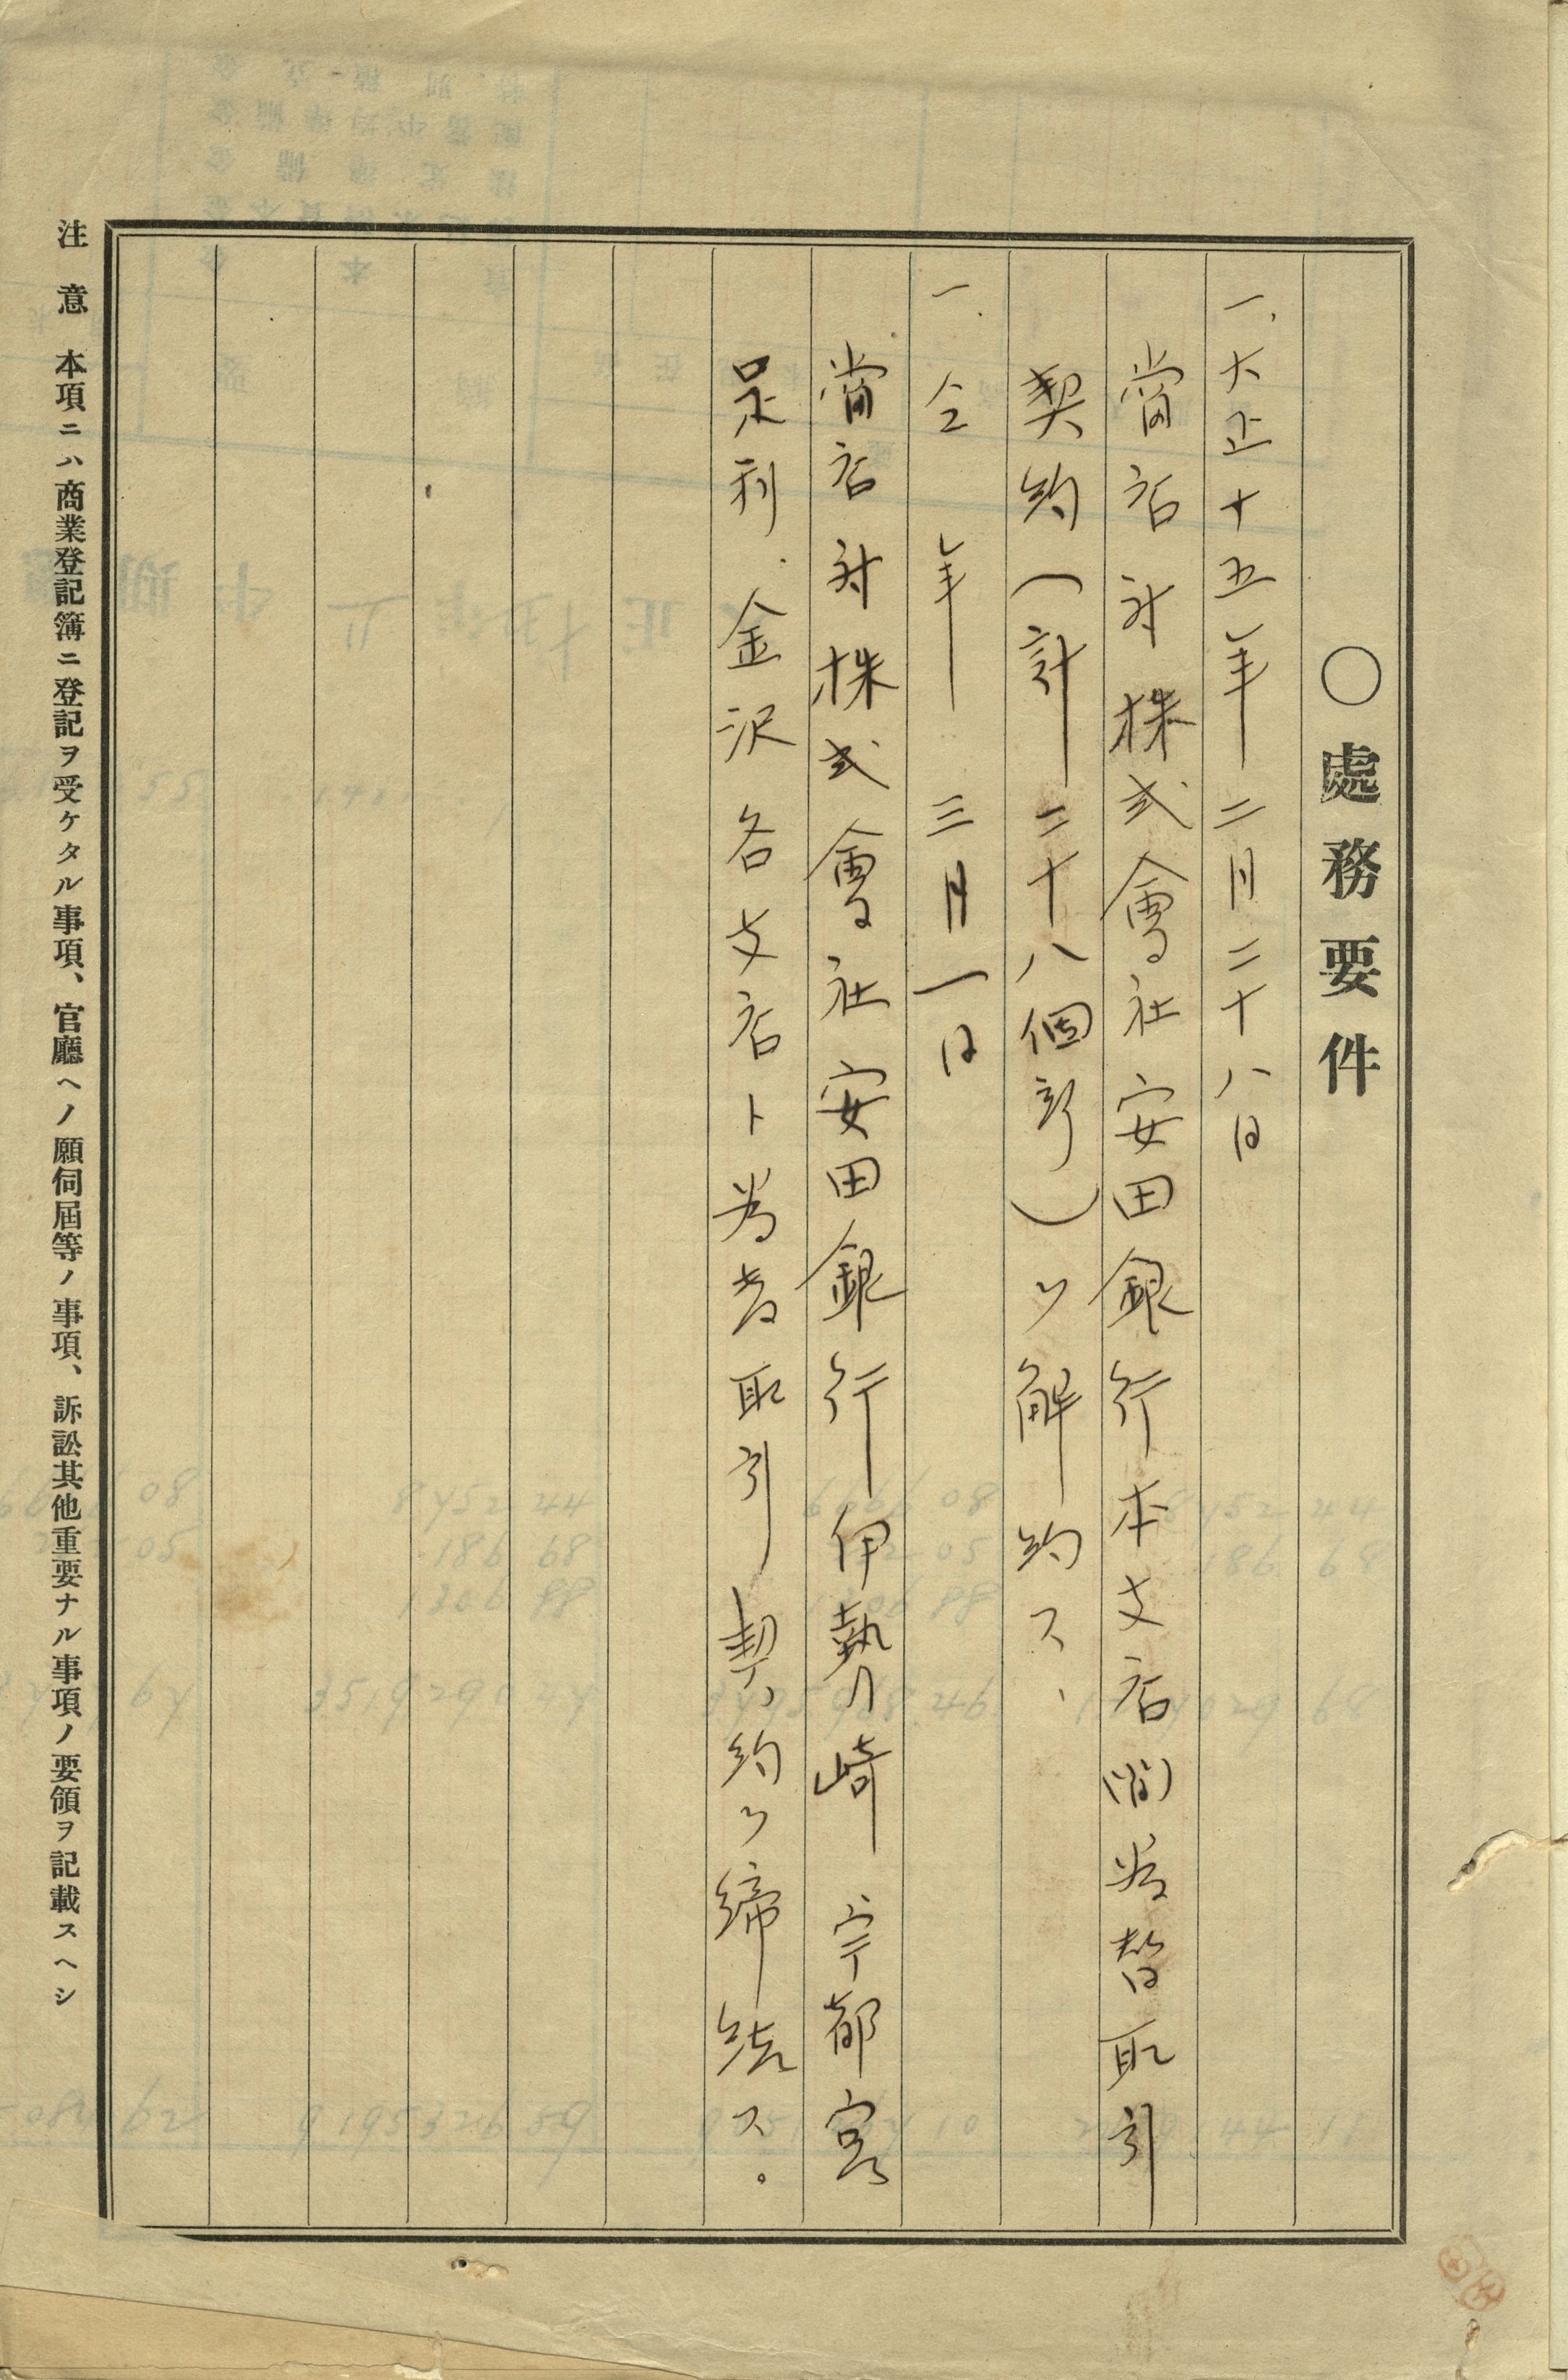 〇處務要件
一、大正十五年二月二十八日
當店対株式會社安田銀行本支店間為替取引
契約(計二十八個所)ヲ解約ス、
一、仝年三月一日
當店対株式會社安田銀行伊勢崎 宇都宮
足利、金沢各支店ト為替取引契約ヲ締結ス。
注意 本項ニハ商業登記簿ニ登記ヲ受ケタル事項、官廳ヘノ願伺屆等ノ事項、訴訟其他重要ナル事項ノ要領ヲ記載スヘシ